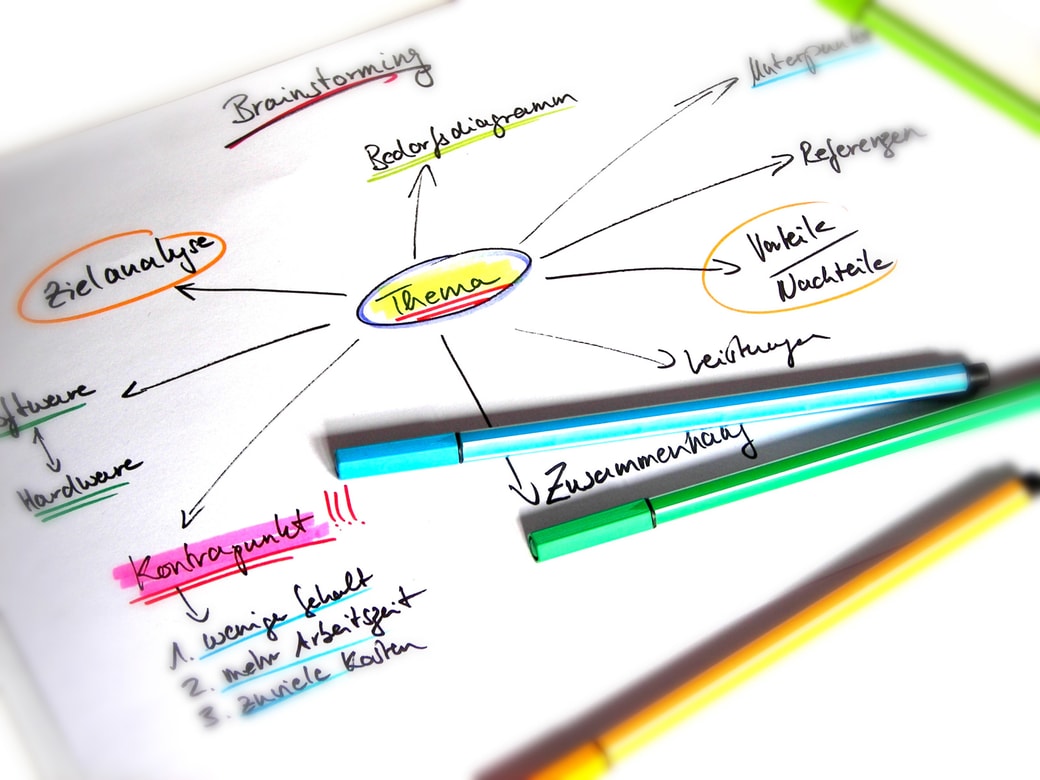 Brainstorming
Bedarfsdiagramm
Unterpunkt
Referenzen
Vorteile
Nachteile
Zielanalyse
Thema
Leistungen
Software
Hardware
Zusammenhang
Kontrapunkt !!!
1. weniger Gehalt
2. mehr Arbeitszeit
3. zuviele Kosten